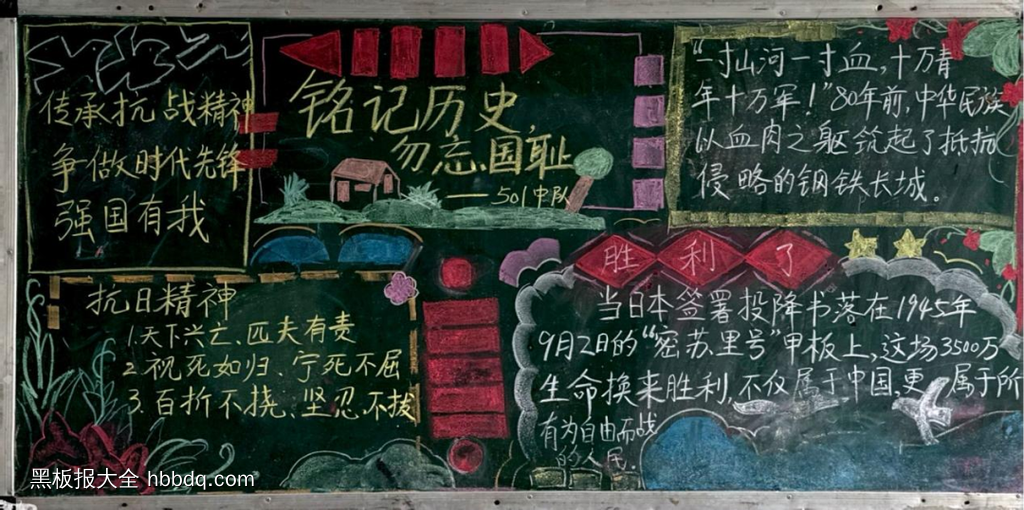 传承抗战精神
争做时代先锋
强国有我
铭记历史,
勿忘国耻
——501中队
“一寸山河一寸血,十万青
年十万军!”80年前,中华民族
以血肉之躯筑起了抵抗
侵略的钢铁长城。
抗日精神
1.天下兴亡、匹夫有责
2.视死如归、宁死不屈
3.百折不挠、坚忍不拔
胜利了
当日本签署投降书落在1945年
9月2日的“密苏里号”甲板上,这场3500万
生命换来胜利,不仅属于中国,更 属于所
有为自由而战
的人民.
黑板报大全 hbbdq.com